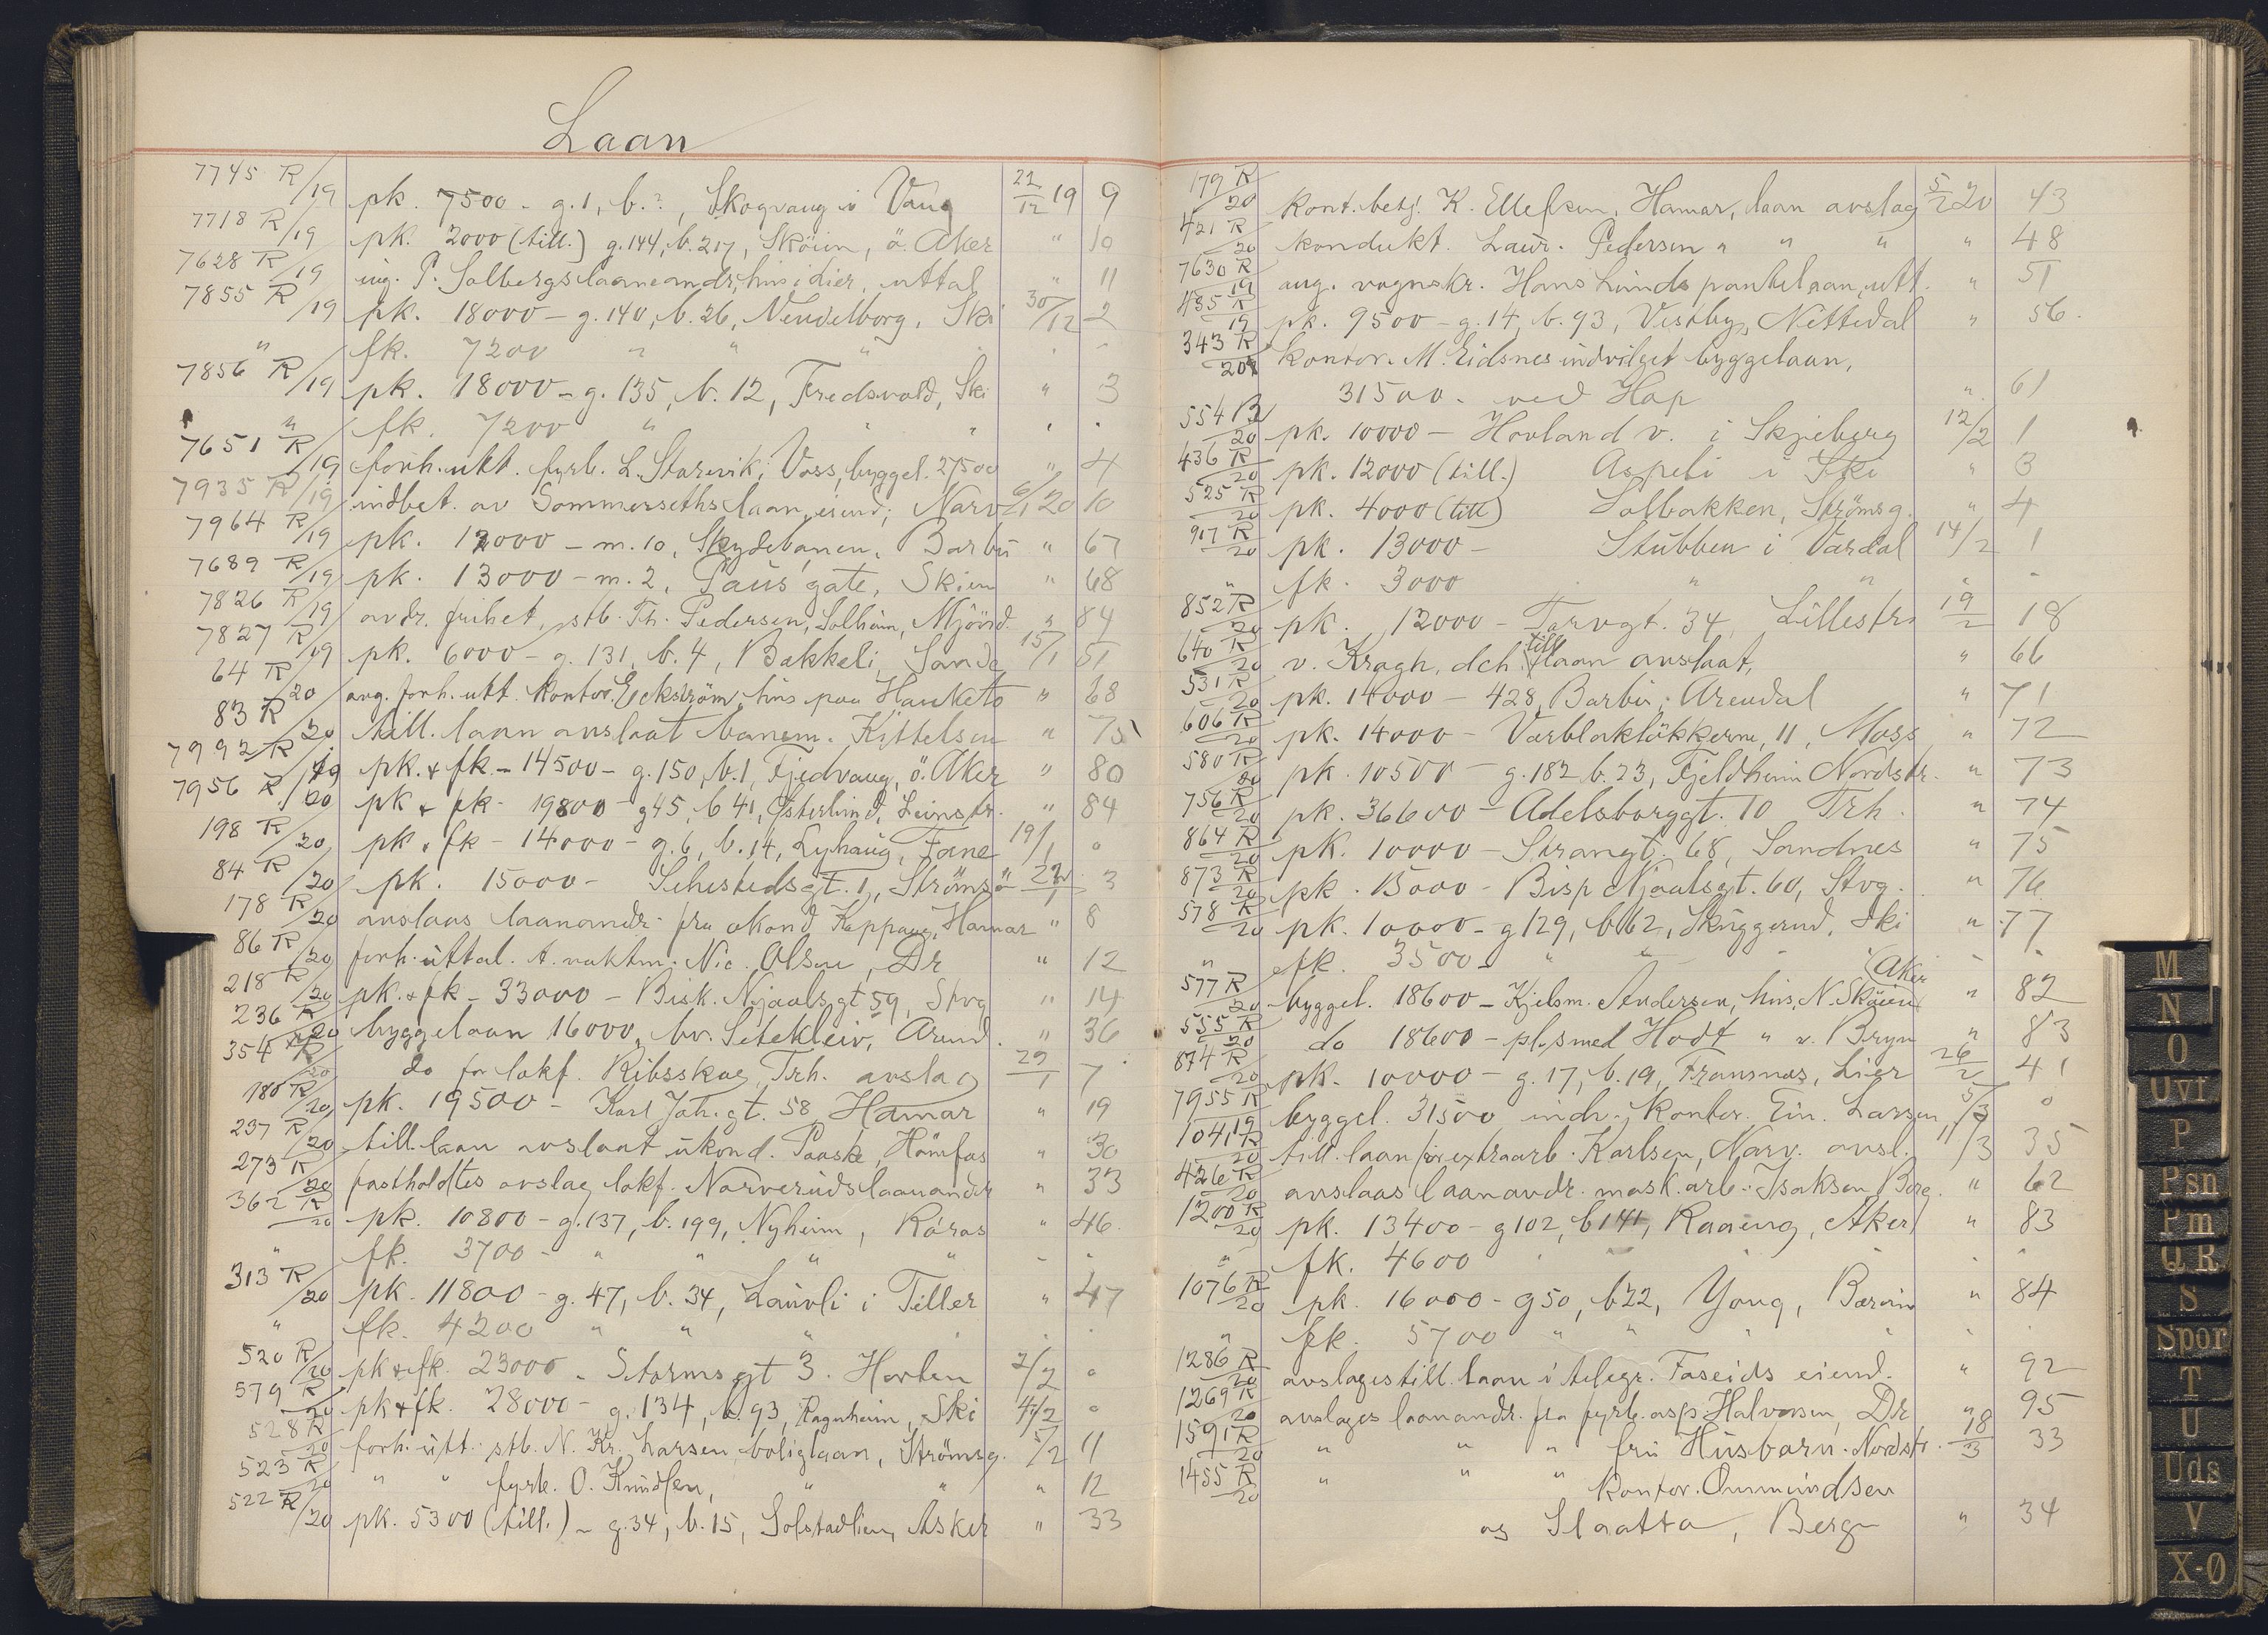 Laan
7745 R/19 pk. 7500 - g. 1, b. ?, Skogvang i Vang 22/12 19 9
7718 R/19 pk. 2000 (till.) g. 144, b. 217, Sköien, ö. Aker " 10
7628 R/19 ing. P. Solbergs laaneandr., hus i dier, uttal. " 11
7855 R/19 pk. 18000 - g. 140, b. 26, Nendelborg, Ski 30/12 2
" fk. 7200 " " " " "
7856 R/19 pk. 18000 - g. 135, b. 12, Fredsvold, Ski " 3
" fk. 7200 " " " " "
7651 R/19 forh. utt. fyrb. L. Starevik, Voss, byggel. 27500 " 4
7935 R/19 indbet. av Sommerseths laan, eiend., Narv. 6/1 20 10
7964 R/19 pk. 12000 - m. 10, Skydebanen, Barbu " 67
7689 R/19 pk. 13000 - m. 2, Paus' gate, Skien " 68
7826 R/19 avdr. frihet, stb. Th. Pedersen, Solheim, Mjönd. " 84
7827 R/19 pk. 6000 - g. 131, b. 4, Bakkeli, Sande 15/1 51
64 R/20 ang. forh. utt. kontor. Eckström, hus paa Hauketo " 68
83 R/20 till. laan avslaat banem. Kittelsen " 75
7992 R/19 pk. & fk. - 14500 - g. 150, b. 1, Fjedvang, ö. Aker " 80
7956 R/20 pk & fk - 19800 - g 45, b 41, Österlund, Leinstr. " 84
198 R/20 pk & fk - 14000 - g. 6, b. 14, Lyhaug, Fane 19/1 0
84 R/20 pk. 15000 - Sehestedsgt. 1, Strömsö 22/1 3
178 R/20 avslaas laanandr. fra okond. Keppang, Hamar " 8
86 R/20 forh. uttal. t. vaktm. Nic. Olsen, Dr. " 12
218 R/20 pk. & fk - 33000 - Bisk. Njaalsgt 59, Stvg " 14
236 R/20 byggelaan 16000, bv. Sitekleiv, Arend. " 36
354 R/20 do for lokf. Ribsskog, Trh. avslag 29/1 7
180 R/20 pk. 19500 - Karl Joh. gt. 58 Hamar " 19
237 R/20 till. laan avslaat ukond. Paaske, Hömfos " 30
273 R/20 fastholdtes avslag lokf. Narveruds laanandr " 33
362 R/20 pk. 10800 - g. 137, b. 199, Nyheim, Röros " 46
" fk. 3700 - " " " " " "
313 R/20 pk. 11800 - g. 47, b. 34, Lauvli i Tiller " 47
" fk. 4200 " " " " " "
520 R/20 pk & fk. 23000 - Stormsgt 3. Horten 2/2 0
579 R/20 pk & fk. 28000 - g. 134, b. 93, Ragnheim, Ski 4/2 0
528 R/20 forh. utt. stb. N. Kr. Larsen, boliglaan, Strömsg. 5/2 11
523 R/20 " " fyrb. O. Knudsen, " " " 12
522 R/20 pk. 5300 (till.) - g. 34, b. 15, Solstadlien, Asker " 33
179 R/20 kont. betj. K. Ellefsen, Hamar, laan avslag 5/2 20 43
421 R/20 kondukt. Laur. Pedersen " " " " 48
7630 R/19 ang. vognskr. Hans Lunds pantelaan, utt. " 51
435 R/19 pk. 9500 - g. 14, b. 93, Vestby, Nittedal " 56
343 R/20 kontor. M. Eidsnes indvilget byggelaan,
31500 - ved Hop " 61
554 R/20 pk. 10000 - Hovland v. i Skjeberg 12/2 1
436 R/20 pk. 12000 (till.) Aspeli i Ski " 3
525 R/20 pk. 4000 (till) Solbakken, Strömsg. " 4
917 R/20 pk. 13000 - Stubben i Vardal 14/2 1
" fk. 3000 " " " "
852 R/20 pk. 12000 - Torvgt. 34, Lillestr. 19/2 18
640 R/20 v. Kragh, dch. till laan avslaat, " 66
531 R/20 pk. 14000 - 428, Barbu, Arendal " 71
606 R/20 pk. 14000 - Værbloklökkerne, 11, Moss " 72
580 R/20 pk. 10500 - g. 182 b. 23, Fjeldheim Nordstr. " 73
756 R/20 pk. 36600 - Adelsborggt. 10 Trh. " 74
864 R/20 pk. 10000 - Strangt. 68, Sandnes " 75
873 R/20 pk. 15000 - Bisp Njaalsgt. 60, Stvg. " 76
578 R/20 pk. 10000 - g 129, b 62, Skuggerud, Ski " 77
" fk. 3500 - " " " " "
577 R/20 byggel. 18600 - Kjelsm. Andersen, hus, N. Sköien (Aker " 82
555 R/20 do 18600 - pl.smed Hodt " v. Bryn " 83
874 R/20 pk. 10000 - g. 17, b. 19, Fransnes, Lier 26/2 41
7955 R/19 byggel. 31500 indv., kontor. Ein. Larsen, 5/3 0
1041 R/20 till. laan for extraarb. Karlsen, Narv. avsl. 11/3 35
426 R/20 avslaas laanandr. mask. arb. Isaksen Berg. " 62
1200 R/20 pk. 13400 - g 102, b 141, Raaeng, Aker " 83
" fk. 4600 " " " "
1076 R/20 pk. 16000 - g 50, b 22, Yong, Bærum " 84
" fk. 5700 " " " " "
1286 R/20 avslages till. laan i telegr. Faseids eiend. " 92
1269 R/20 avslages laanandr. fra fyrb. asp. Halvorsen, Dr " 95
1591 R/20 " " " fru Husbarn. Nordstr. 18/3 33
1455 R/20 " " " kontor. Ommundsen
og Slaatta, Berg " 34
M
N
O
Uvf
P
Psn
Pm
Q R
S
Spor
T
U
Uds
V
X-Ø